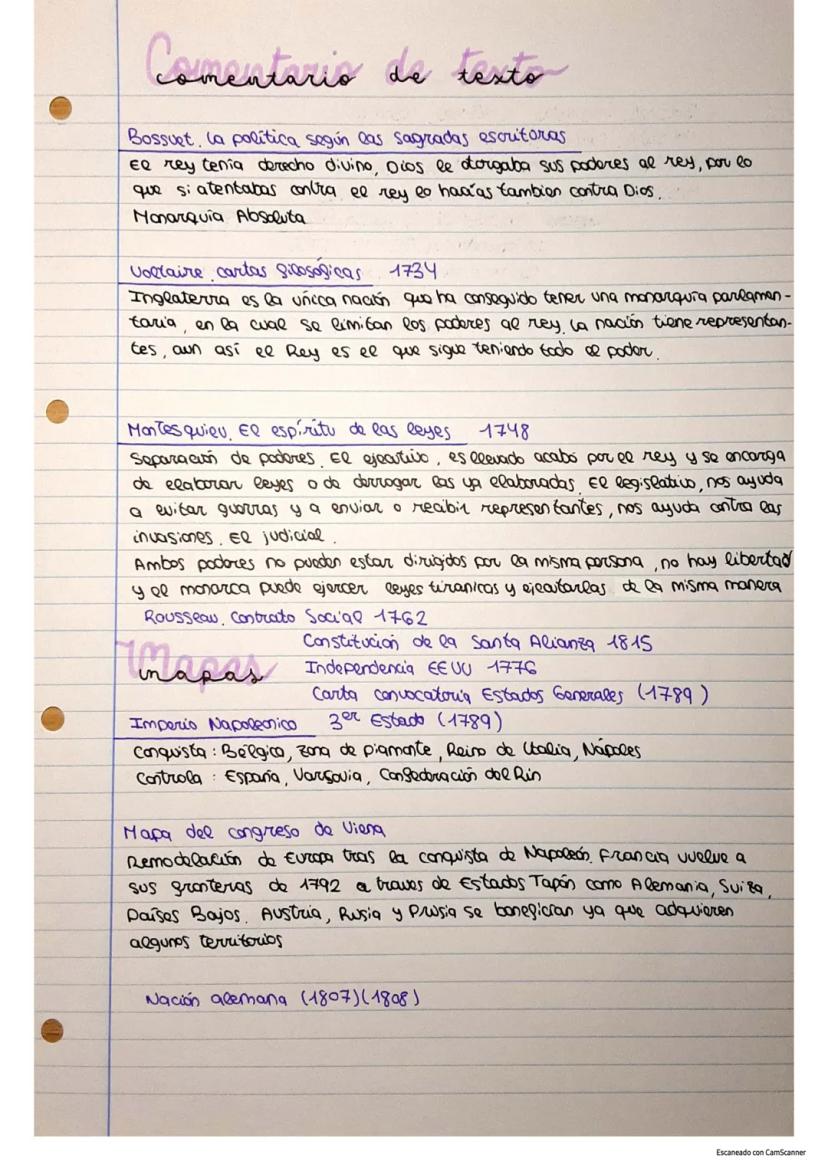 Comentario de texto
comentario de texto
Bossuet. La política según las sagradas escrituras
El rey tenía derecho divino, Dios le otorgaba sus poderes al rey, por lo
que si atentabas contra el rey lo hacías tambien contra Dios.
Monarquía Absoluta
Voltaire. cartas filosóficas 1734
Inglaterra es la única nación que ha conseguido tener una monarquía parlamen-
taria, en la cual se limitan los poderes al rey. La nación tiene representan-
tes, aun así el Rey es el que sigue teniendo todo el poder.
Montesquieu. El espíritu de las leyes 1748
Separación de poderes. El ejecutivo, es llevado acabo por el rey y se encarga
de elaborar leyes o de derrogar las ya elaboradas. El legislativo, nos ayuda
a evitar guerras y a enviar o recibir representantes, nos ayuda contra las
invasiones. El judicial.
Ambos poderes no pueden estar dirigidos por la misma persona, no hay libertad
y el monarca puede ejercer leyes tiranicas y ejecutarlas de la misma manera
Rousseau. Contrato Social 1762
Constitución de la Santa Alianza 1815
Mapas
mapas
Independencia EEUU 1776
Carta convocatoria Estados Generales (1789)
Imperio Napoleonico 3er Estado (1789)
Conquista: Bélgica, zona de piamonte, Reino de Italia, Nápoles
Controla: España, Varsovia, Confederación del Rin
Mapa del congreso de Viena
Remodelación de Europa tras la conquista de Napoleón. Francia vuelve a
sus fronteras de 1792 a traves de Estados Tapón como Alemania, Suiza,
Países Bajos. Austria, Rusia y Prusia se benefician ya que adquieren
algunos territorios
Nación alemana (1807)(1808)
Escaneado con CamScanner